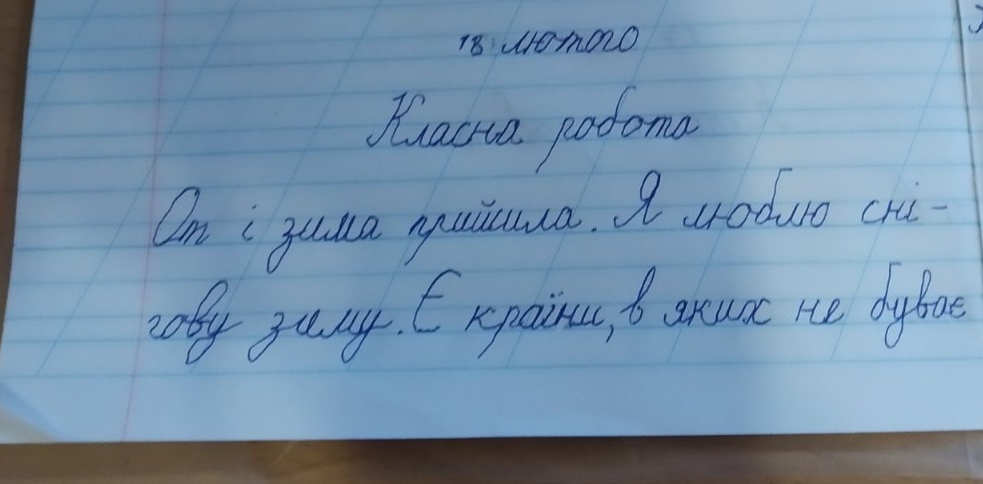 18 лютого
Класна робота
От і зима прийшла. Я люблю сні-
гову зиму. Є країни, в яких не буває